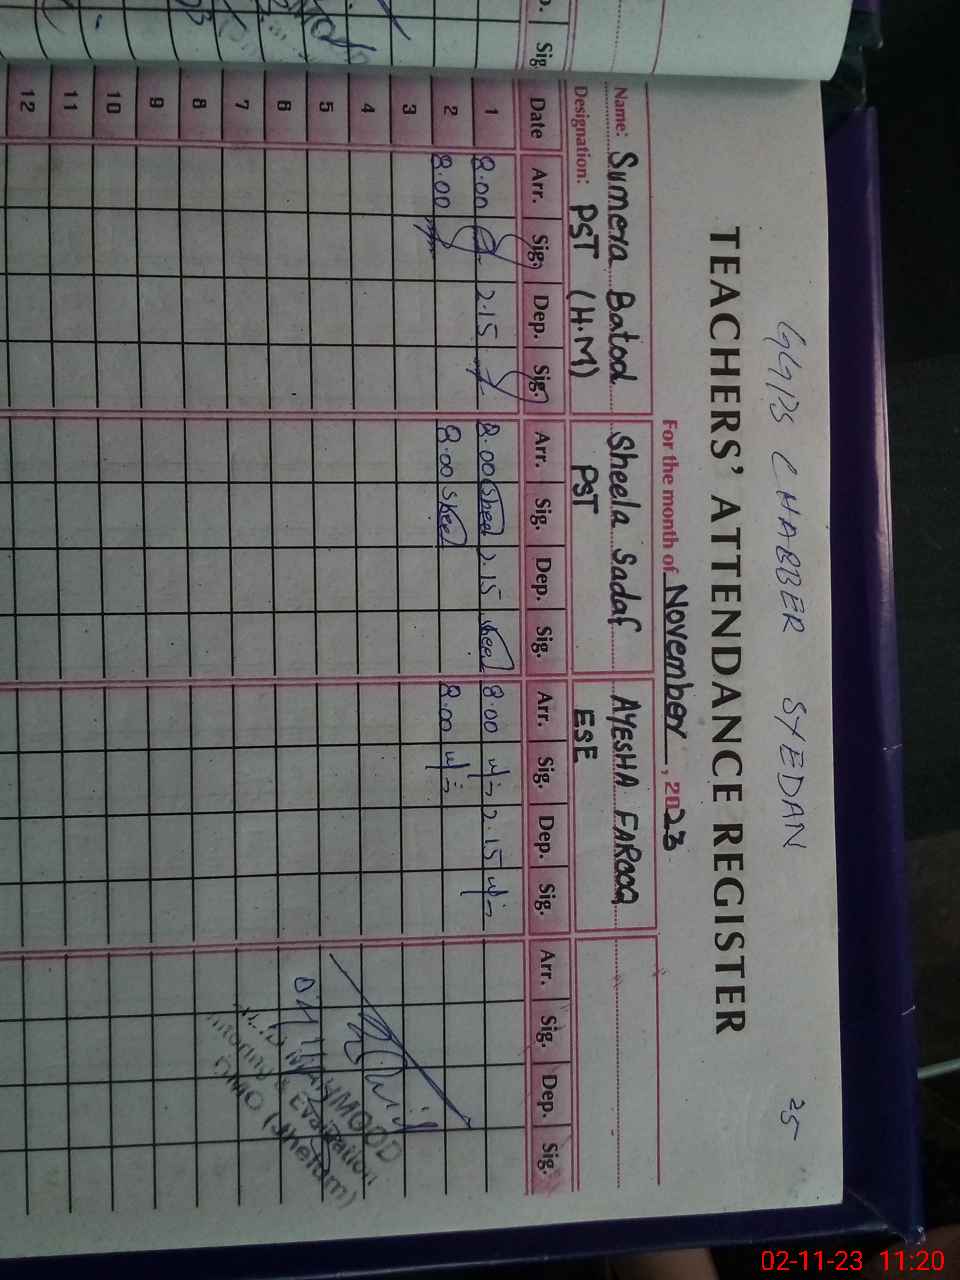 GGPS CHABBER SYEDAN 25
TEACHERS' ATTENDANCE REGISTER
For the month of November, 2023
Name: Sumera Batool Sheela Sadaf AYESHA FAROOQ
Designation: PST (H.M) PST ESE
Date Arr. Sig. Dep. Sig. Arr. Sig. Dep. Sig. Arr. Sig. Dep. Sig. Arr. Sig. Dep. Sig.
1 8.00 2.15 8.00 Sheel 2.15 Sheel 8.00 2.15
2 8.00 8.00 Sheel 8.00
3
4
5
6
7
8
9
10
11
12
Sig.
MEHMOOD
Monitoring & Evaluation
(Jhelum)
02-11-23 11:20